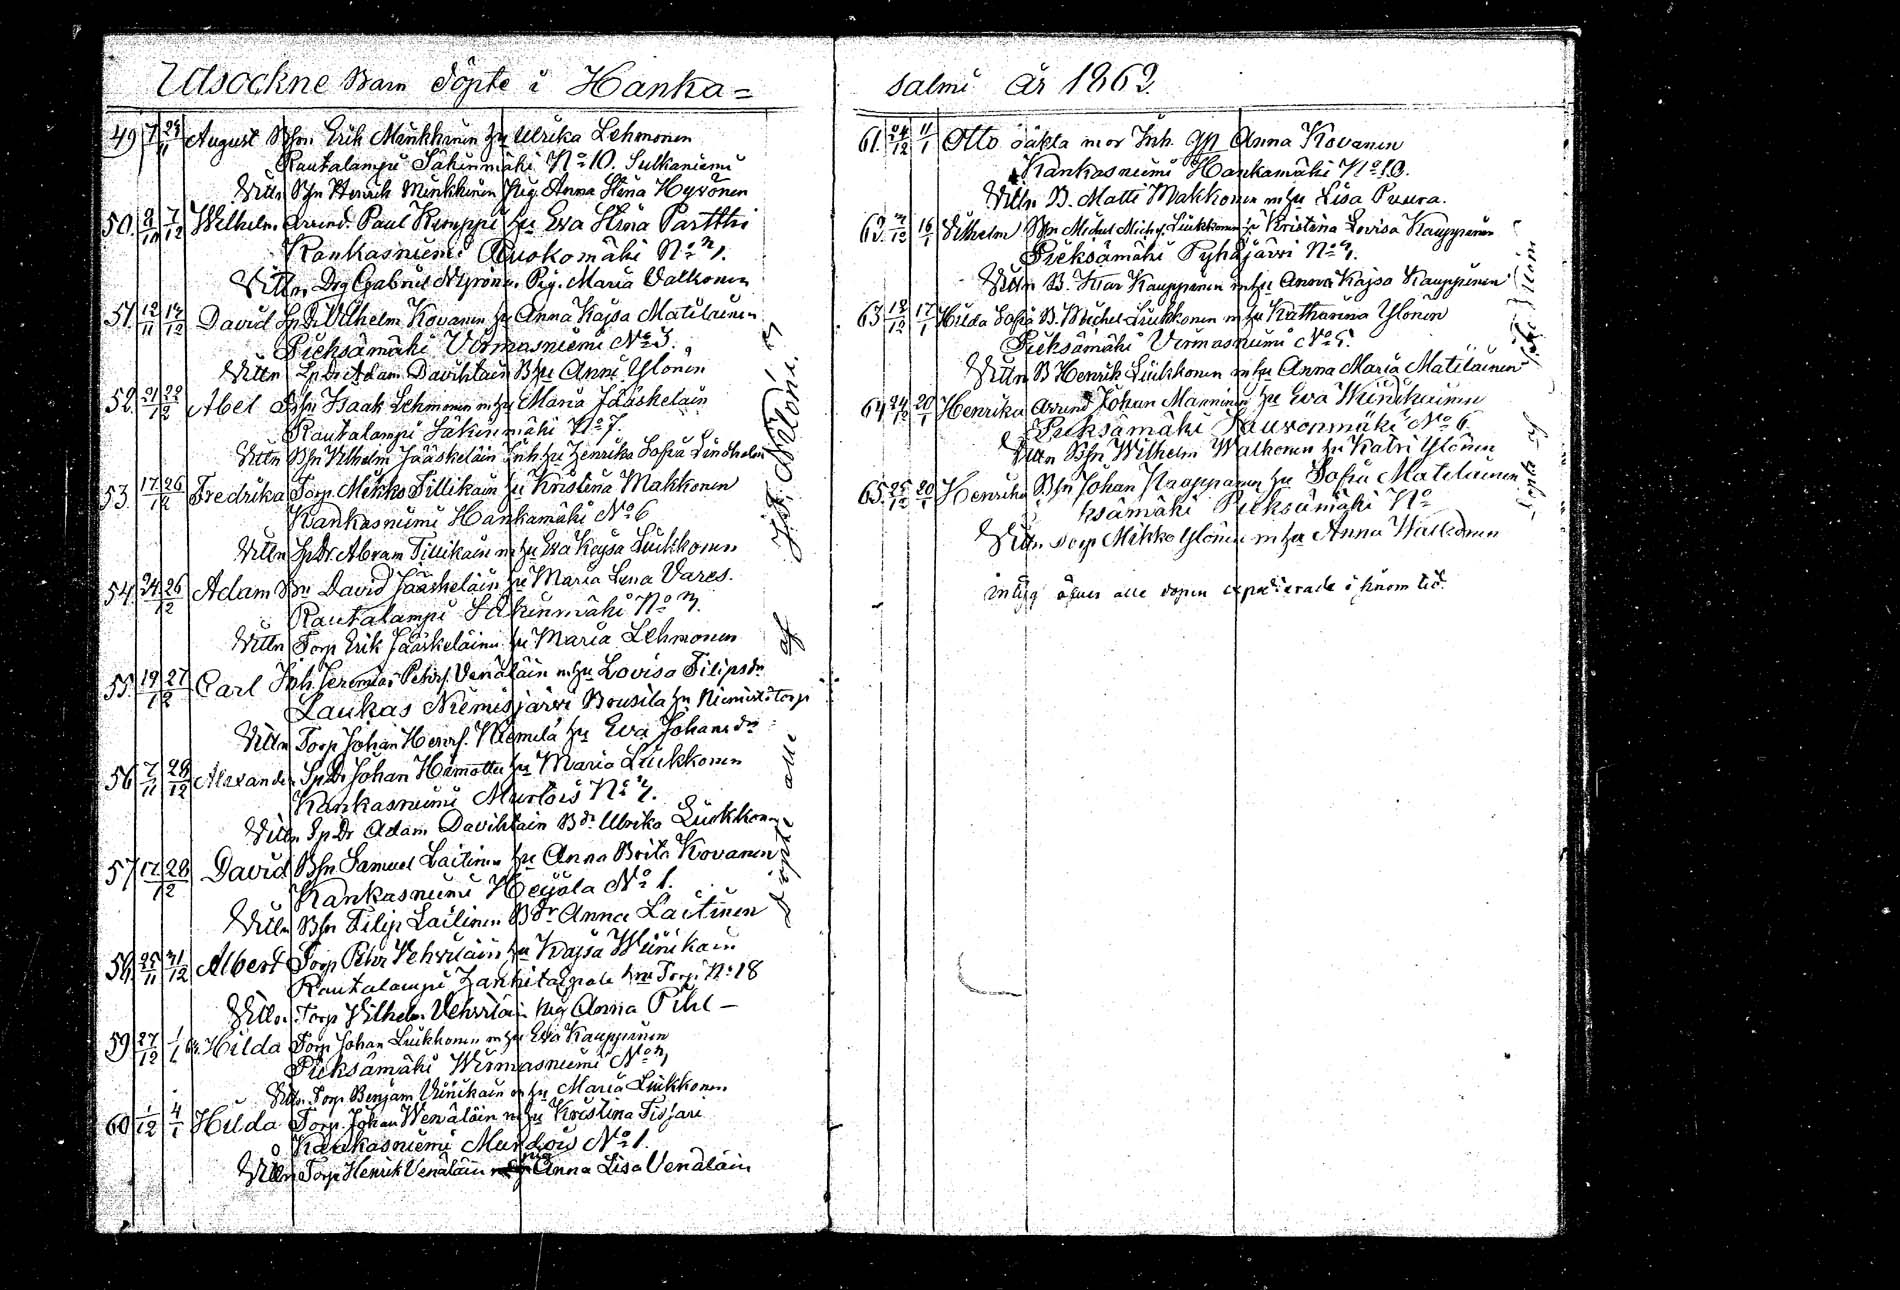 Utsockne Barn döpte i Hanka=
49 7/11 29/11 August Bsn Erik Minkkinen hu Ulrika Lehmonen
Rautalampi Säkinmäki No 10. Sulkaniemi
Vittn Bsn Henrik Minkkinen Pig. Anna Stina Hyvönen
50. 8/10 7/12 Wilhelm Arrend. Paul Kemppi hu Eva Stina Partthi
Kankasniemi Ruokomäki No
Vittn Drg Gabriel Nyrönen Pig. Maria Valkonen
51. 12/11 14/12 David Sp Dr Vilhelm Kovanen hu Anna Kajsa Matilainen
Pieksämäki Virmasniemi No 3.
Vittn Sp Dr Adam Davihlain B hu Anni Ylönin
52. 21 22/12 Abel Bsn Isaak Lehmonen m hu Maria Jääskelain
Rautalampi Säkinmäki No 7.
Vittn Bsn Vilhelm Jääskeläin Inh. hu Henrika Sofia Lindholm
53. 17 26/12 Fredrika Torp. Mikko Tillikain hu Kristina Makkonen
Kankasniemi Hankamäki No 6
Vittn Sp Dr. Abram Tillikain m hu Eva Kajsa Liukkonen
54. 24 26/12 Adam Bsn David Jääskeläin hu Maria Lena Vares.
Rautalampi Säkinmäki No 3.
Vittn Torp Erik Jääskeläinen hu Maria Lehmonen
55. 19 27/12 Carl Inh. Jeremias Pehrs. Venäläin m hu Lovisa Filipsdr
Laukas Niemisjärvi Torp
Vittn Torp Johan Henrs. Niemilä hu Eva Johansdr
56 7/11 28/12 Alexander Sp Dr Johan Himottu hu Maria Liukkonen
Kankasniemi Murtois No
Vittn Sp Dr Adam Davihlain B dr Ulrika Liukkonen
57 17 28/12 David Bsn Samuel Laitinen hu Anna Brita Kovanen
Kankasniemi No 1.
Vittn Bsn Filip Laitinen B dr Anna Laitinen
58. 25/11 31/12 Albert Torp Pehr Vehviläin hu Kajsa Wiinikain
Rautalampi No 18
Vittn Torp Vilhelm Vehviläin Pig Anna Pihl –
59 27/12 1/1 Hilda Torp Johan Liukkonen m hu Eva Kauppinen
Pieksämäki Wirmasniemi No
Vittn Torp Benjam Viinikain m hu Maria Liukkonen
60 1/12 4/1 Hilda Torp. Johan Wenäläin m hu Kristina Tissari
Kankasniemi Murtois No 1.
Vittn Torp Henrik Venäläin Pig Anna Lisa Venäläin
Döpte alle af
salmi år 1863
61. 24/12 11/1 Otto oäkta mor Inh. Anna Kovanen
Kankasniemi Hankamäki No 10.
Vittn B. Matti Makkonen m hu Lisa Puura.
62. 3/12 16/1 Vilhelm Bsn Michel Michs. Liukkonen hu Kristina Lovisa Kauppinen
Pieksämäki Pyhäjärvi No
Vittn B. Ivar Kauppinen m hu Anna Kajsa Kauppinen
63. 12/12 17/1 Hilda Sofia B. Michel Liukkonen m hu Katharina Ylönin
Pieksämäki Virmasniemi No 5.
Vittn B Henrik Liukkonen m hu Anna Maria Matilainen
64 24/12 20/1 Henrika Arrend Johan Manninen hu Eva Wiinikainen
Pieksämäki No 6.
Vittn Bsn Wilhelm Walkonen hu Katri Ylönen
65. 25/12 20/1 Henrika Bsn Johan Kauppinen hu Sofia Matilainen
ksämäki Pieksämäki No
Vittn Torp Mikko Ylönin m hu Anna Walkonen
alle dopen expedierade tid.